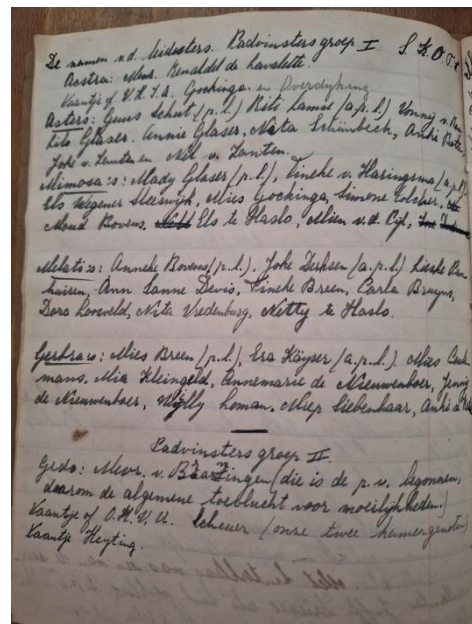 De namen v.d. leidsters. Padvinstersgroep I S.K.O.
Aostra: Mevr. Benaldel de Lavalette
Vaantje of V.H.I.A. Gockinga en Overdijking
Asters: Guus Schut (p.l.) Rite Lamie (a.p.l.) Vonny v.
tils Glaser. Annie Glaser, Nita Schünbeck, André
Joke v. Zanten en Nel v. Zanten.
Mimosa's: Mady Glaser (p.l.), Tineke v. Haringsma (a.p.l.)
Els Wegener Sleeswijk, Mies Gockinga, Simone Colcher,
Moud Bovens, Els te Haslo, Mien v.d. Pijl,
Melati's: Anneke Bovens (p.l.). Joke Derksen (a.p.l.)
huizen, Ann Sanne Devis, Tineke Breen, Carla Bruyns,
Dora Loosveld, Nita Vredenburg, Netty te Haslo.
Gerbra's: Mies Breen (p.l.), Era Käyser (a.p.l.). Mies
mans, Mia Kleingeld, Annemarie de Nieuwenboer, Jenny
de Nieuwenboer, Willy Loman, Miep Liebenhaar, André de
Padvinstersgroep II.
Gedo: Mevr. v. Baazingen (die is de p.v. begonnen,
daarom de algemene toevlucht voor moeilijkheden.)
Vaantje of O.H.V.U. Scheuer (onze twee kamergenoten)
Vaantje Heyting.